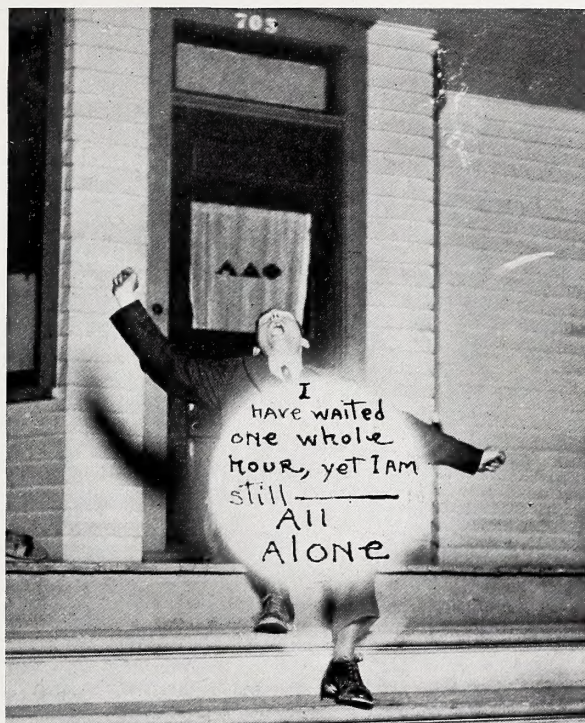 703
ΑΔΦ
I
HAVE WAITED
ONE WHOLE
HOUR, YET I AM
still ————
All
AlONe